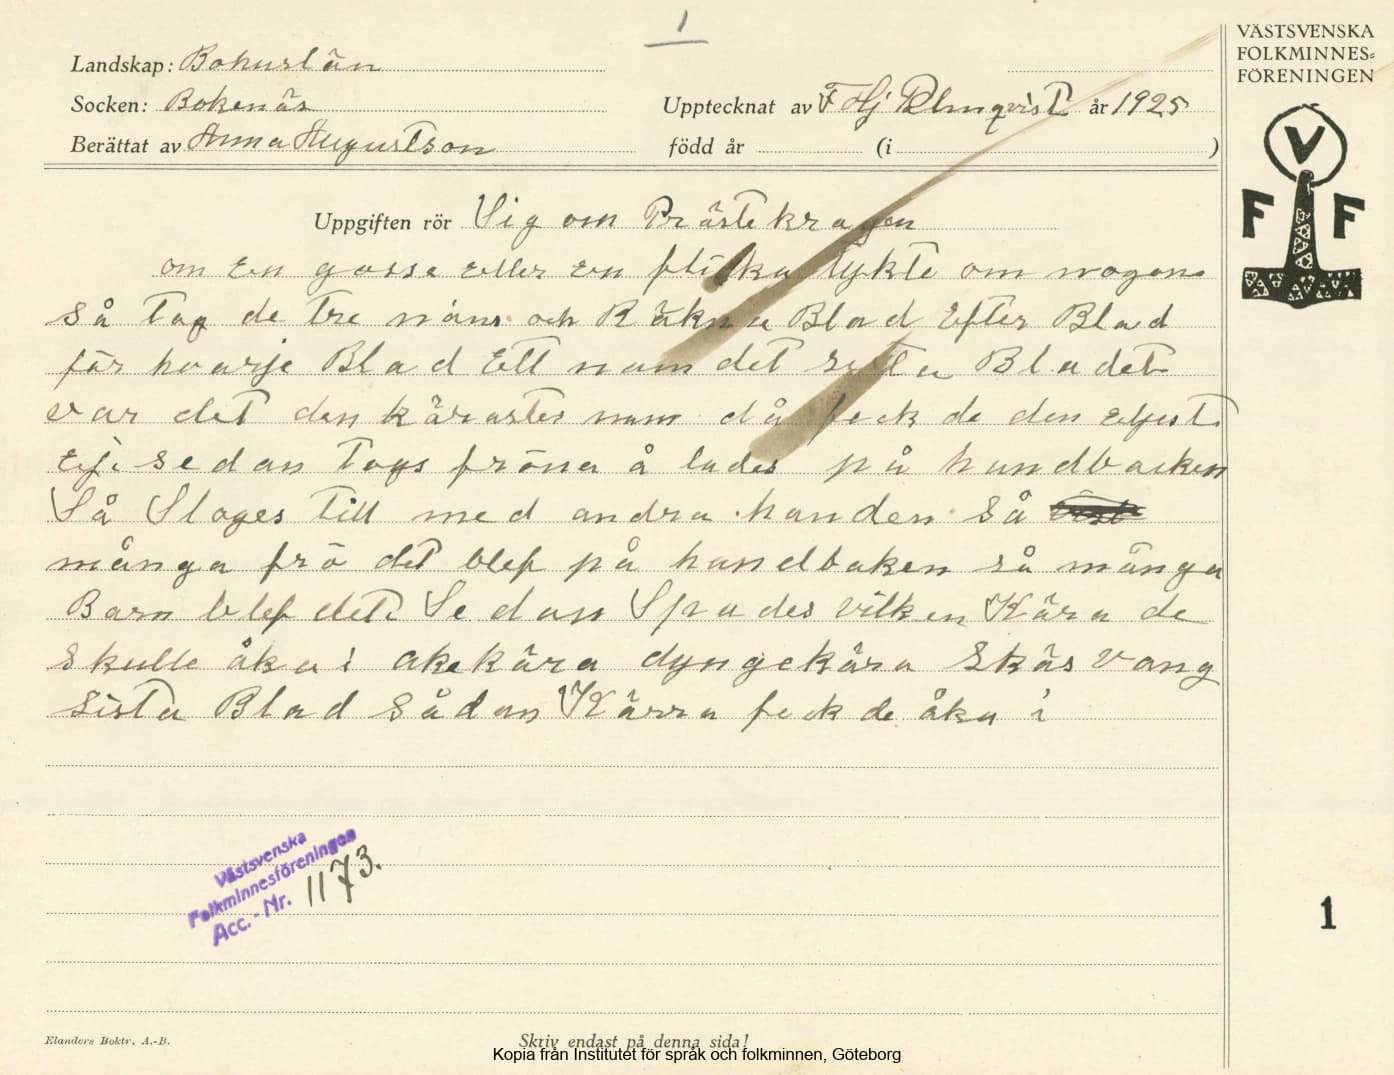 1
VÄSTSVENSKA
FOLKMINNES=
FÖRENINGEN
Landskap: Bohuslän
Socken: Bokenäs
Upptecknat av F Hj Palmqvist år 1925
Berättat av Anna Augustson
född år (i )
V
F F
Uppgiften rör Sig om Prästekragen
om En gosse eller en flicka tykte om nogon
så tog de tre näns och Räkna Blad Efter Blad
för hvarje Blad Ett nam det sista Bladet
var det den kärastes nam då feck de den
sedan togs fröna å lades på handbacken
Så Sloges till med andra handen så
många frö det blef på handbaken så många
Barn blef det Sedan Spades vilken Kära de
skulle åka i åkekära dyngekära Skäs vang
sista Blad sådan Kärra feck de åka i
Västsvenska
Folkminnesföreningen
Acc.-Nr. 1173.
1
Elanders Boktr. A.-B.
Skriv endast på denna sida!
Kopia från Institutet för språk och folkminnen, Göteborg